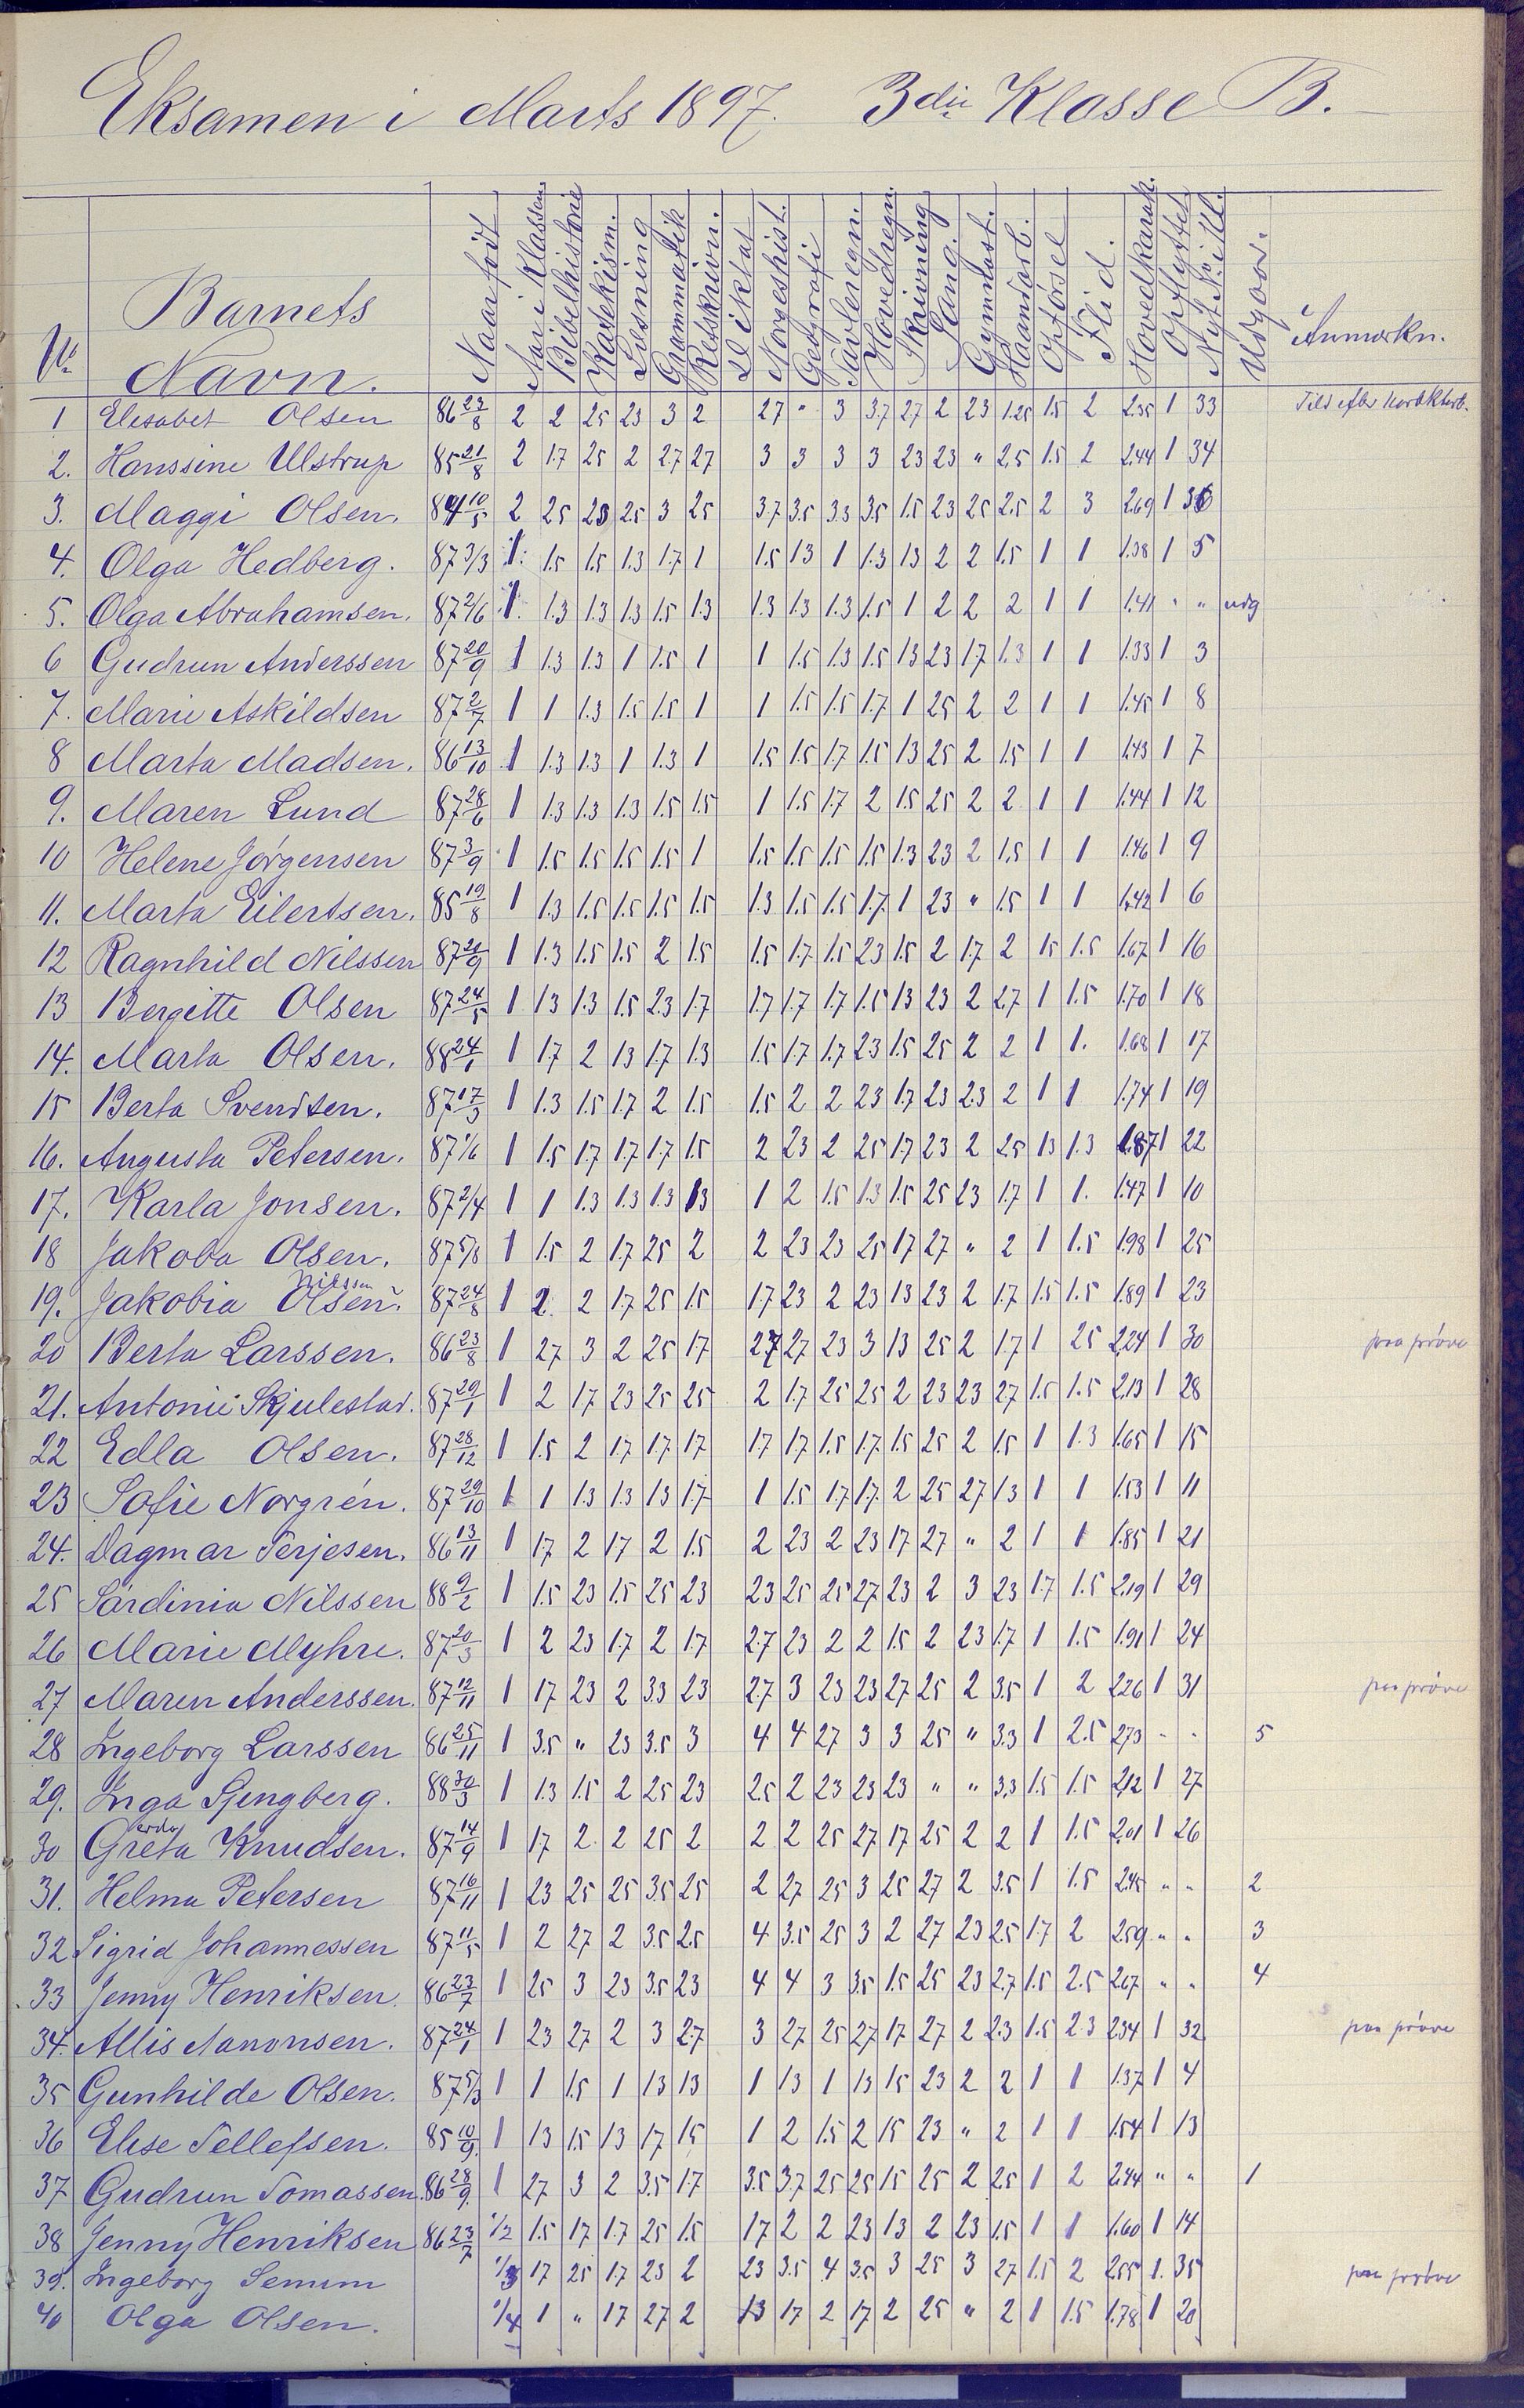 Eksamen i Marts 1897. 3die Klasse B.
№ Barnets Navn. Naar født Aar i Klassen Bibelhistorie Katekism. Læsning Grammatik Retskrivn. Diktat Norgeshist. Geografi Tavleregn. Hovedregn. Skrivning Sang. Gymnast. Haandarb. Opførsel Flid. Hovedkarak. Opflyttet Nyt Nr. i Kl. Udgaar. Anmærkn.
1 Elesabet Olsen 86 23/8 2 2 25 23 3 2 27 " 3 3.7 27 2 23 1.25 1.5 2 2.35 1 33
2. Hanssine Ulstrup 85 21/8 2 1.7 25 2 2.7 27 3 3 3 3 23 23 " 2.5 1.5 2 2.44 1 34
3. Maggi Olsen. 84 10/5 2 25 25 25 3 25 3.7 3.5 3.3 3.5 1.5 23 25 2.5 2 3 2.69 1 36
4. Olga Hedberg. 87 3/3 1. 1.5 1.5 1.3 1.7 1 1.5 13 1 1.3 13 2 2 1.5 1 1 1.38 1 5
5. Olga Abrahamsen. 87 2/6 1. 1.3 1.3 1.3 1.5 1.3 1.3 1.3 1.3 1.5 1 2 2 2 1 1 1.41 " " udg
6 Gudrun Anderssen 87 20/9 1 1.3 1.3 1 1.5 1 1 1.5 1.3 1.5 13 23 1.7 1.3 1 1 1.33 1 3
7. Marie Askildsen 87 2/7 1 1 1.3 1.5 1.5 1 1 1.5 1.5 1.7 1 25 2 2 1 1 1.45 1 8
8 Marta Madsen. 86 13/10 1 1.3 1.3 1 1.3 1 1.5 1.5 1.7 1.5 13 25 2 1.5 1 1 1.43 1 7
9. Maren Lund 87 28/6 1 1.3 1.3 1.3 1.5 1.5 1 1.5 1.7 2 1.5 25 2 2 1 1 1.44 1 12
10 Helene Jörgensen 87 3/9 1 1.5 1.5 1.5 1.5 1 1.5 1.5 1.5 1.5 1.3 23 2 1.5 1 1 1.46 1 9
11. Marta Eilertsen. 85 19/8 1 1.3 1.5 1.5 1.5 1.5 1.3 1.5 1.5 1.7 1 23 " 1.5 1 1 1.42 1 6
12 Ragnhild Nilssen 87 21/9 1 1.3 1.5 1.5 2 1.5 1.5 1.7 1.5 23 1.5 2 1.7 2 15 1.5 1.67 1 16
13 Bergitte Olsen 87 24/5 1 13 1.3 1.5 2.3 1.7 1.7 1.7 1.7 1.5 13 23 2 2.7 1 1.5 1.70 1 18
14. Marta Olsen. 88 24/1 1 1.7 2 13 1.7 1.3 1.5 1.7 1.7 23 1.5 25 2 2 1 1. 1.68 1 17
15 Berta Svendsen. 87 17/3 1 1.3 1.5 1.7 2 1.5 1.5 2 2 23 1.7 23 2.3 2 1 1 1.74 1 19
16. Augusta Petersen. 87 1/6 1 1.5 1.7 1.7 1.7 1.5 2 23 2 25 1.7 23 2 25 13 1.3 1.87 1 22
17. Karla Jonsen. 87 2/4 1 1 1.3 1.3 1.3 13 1 2 1.5 1.3 1.5 25 23 1.7 1 1. 1.47 1 10
18 Jakoba Olsen. 87 5/8 1 1.5 2 1.7 25 2 2 23 23 25 17 27 " 2 1 1.5 1.98 1 25
Nilssen
19. Jakobia Olsen. 87 24/8 1 2. 2 1.7 25 1.5 1.7 23 2 23 13 23 2 1.7 1.5 1.5 1.89 1 23
20 Berta Larssen. 86 23/8 1 27 3 2 25 17 27 27 23 3 13 25 2 1.7 1 25 2.24 1 30 paa prøve
21. Antonie Skjulestad. 87 29/1 1 2 17 23 25 25 2 1.7 25 25 2 23 23 27 1.5 1.5 2.13 1 28
22 Edla Olsen. 87 28/12 1 1.5 2 1.7 1.7 17 1.7 1.7 1.5 1.7 1.5 25 2 1.5 1 1.3 1.65 1 15
23 Sofie Norgrén. 87 29/10 1 1 1.3 1.3 13 1.7 1 1.5 1.7 1.7 2 25 27 13 1 1 1.53 1 11
24. Dagmar Terjesen. 86 13/11 1 1.7 2 17 2 1.5 2 23 2 23 17 27 " 2 1 1 1.85 1 21
25 Sardinia Nilssen 88 9/2 1 1.5 23 1.5 25 23 23 25 25 27 23 2 3 23 1.7 1.5 2.19 1 29
26 Marie Myhre. 87 20/3 1 2 23 1.7 2 1.7 2.7 23 2 2 1.5 2 23 1.7 1 1.5 1.91 1 24
27 Maren Anderssen. 87 12/11 1 17 23 2 3.3 23 2.7 3 23 23 27 25 2 3.5 1 2 2.26 1 31 paa prøve
28 Ingeborg Larssen 86 25/11 1 3.5 " 23 3.5 3 4 4 27 3 3 25 " 3.3 1 2.5 2.73 " " 5
29. Inga Sjengberg. 88 30/3 1 1.3 1.5 2 25 23 2.5 2 23 23 23 " " 3.3 1.5 1.5 2.12 1 27
erda
30 Greta Knudsen. 87 14/9 1 17 2 2 25 2 2 2 25 27 17 25 2 2 1 1.5 2.01 1 26
31. Helma Petersen 87 16/11 1 23 25 25 3.5 25 2 27 25 3 25 27 2 3.5 1 1.5 2.45 " " 2
32 Sigrid Johannessen 87 11/5 1 2 27 2 3.5 2.5 4 3.5 25 3 2 27 23 2.5 1.7 2 2.59 " " 3
33 Jenny Henriksen 86 23/7 1 25 3 23 3.5 23 4 4 3 3.5 1.5 25 23 2.7 1.5 2.5 2.67 " " 4
34. Allis Aanonsen. 87 24/1 1 23 27 2 3 2.7 3 27 25 27 17 27 2 2.3 1.5 2.3 2.34 1 32 paa prøve
35 Gunhilde Olsen. 87 5/3 1 1 1.5 1 13 13 1 13 1 13 15 23 2 2 1 1 1.37 1 4
36 Elise Tellefsen. 85 10/9 1 13 1.5 13 17 15 1 2 1.5 2 15 23 " 2 1 1 1.54 1 13
37 Gudrun Tomassen. 86 28/9 1 27 3 2 3.5 1.7 3.5 3.7 25 25 15 25 2 25 1 2 2.44 " " 1
38 Jenny Henriksen 86 23/7 1/2 1.5 17 1.7 25 1.5 17 2 2 23 13 2 23 1.5 1 1 1.60 1 14
39. Ingeborg Semim 1/3 17 25 1.7 23 2 23 3.5 4 3.5 3 25 3 27 1.5 2 2.55 1. 35 paa prøve
40 Olga Olsen. 1/4 1 " 17 27 2 13 17 2 17 2 25 " 2 1 1.5 1.78 1 20